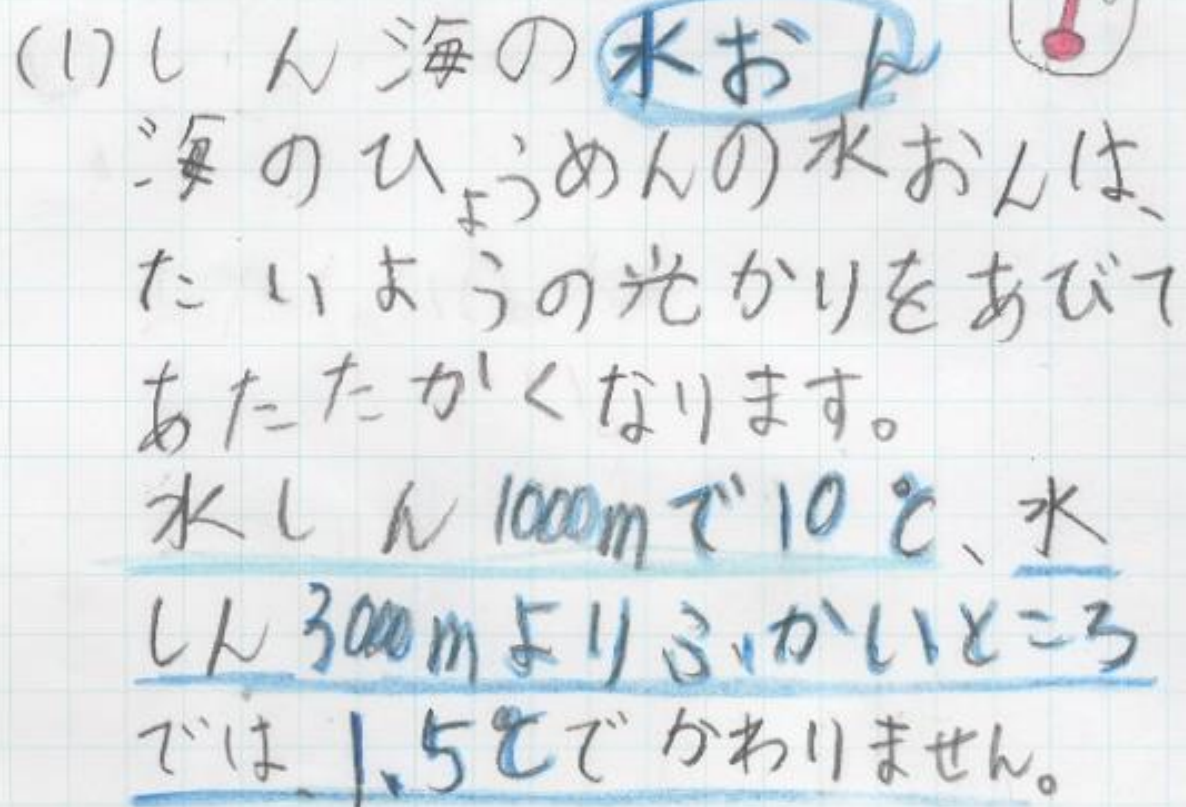 (1)しん海の水おん
海のひょうめんの水おんは、
たいようの光かりをあびて
あたたかくなります。
水しん1000mで10℃、水
しん3000mよりふかいところ
では、1.5℃でかわりません。